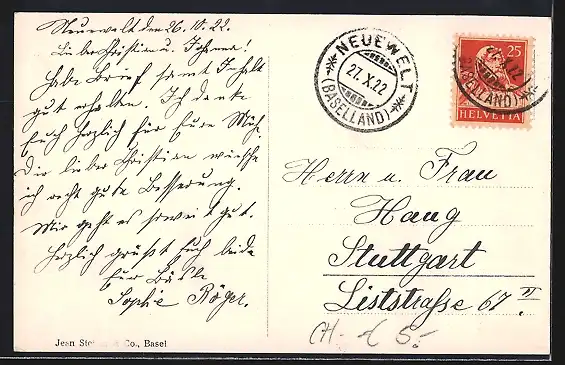 Neuewelt den 26.10.22.
Lieber Christian u. Johanna!
Habe Brief samt Inhalt
gut erhalten. Ich danke
Euch herzlich für Eure Müh.
Dir lieber Christian wünsche
ich recht gute Besserung.
Mir geht es soweit gut.
Herzlich grüßt Euch beide
Sophie Röger.
Jean & Co., Basel
NEUEWELT
27.X.22
(BASELLAND)
25
HELVETIA
X.22
BASELLAND)
Herrn u. Frau
Haug
Stuttgart
Liststraße 67. II
CH- 5.-